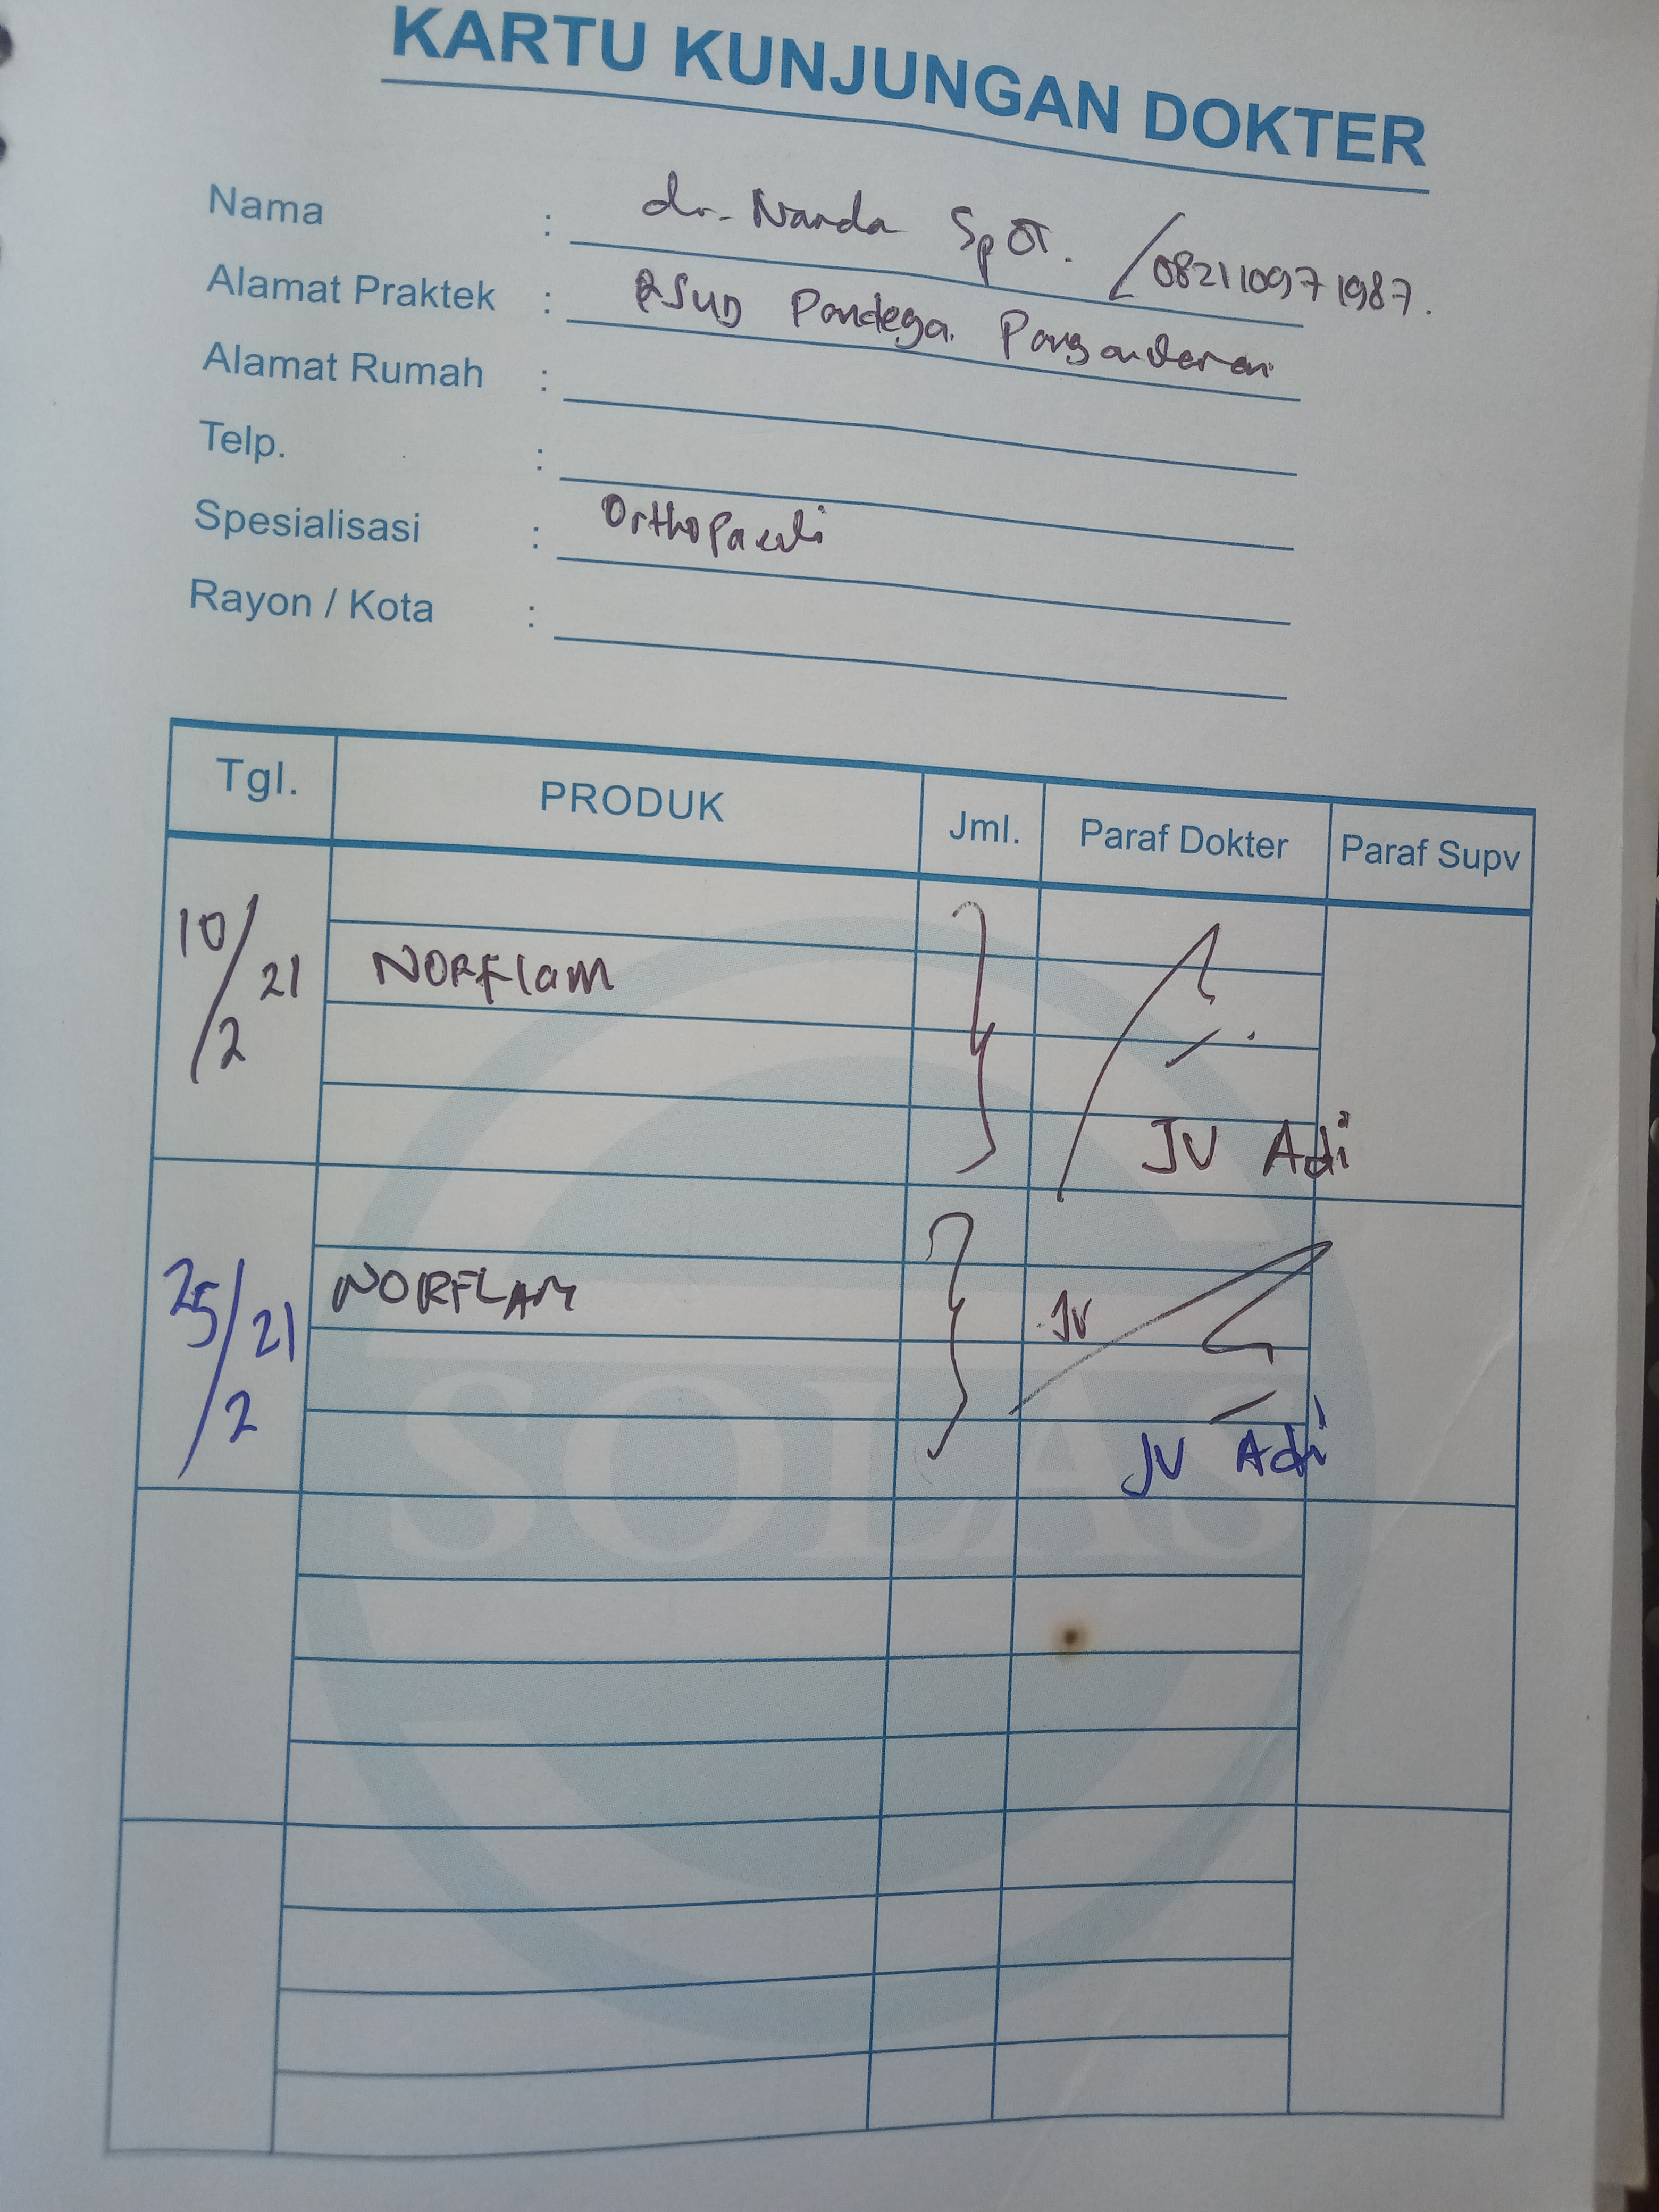 KARTU KUNJUNGAN DOKTER
Nama : dr. Nanda SpOT. / 082110971987.
Alamat Praktek : RSUD Pandega Pangandaran
Alamat Rumah :
Telp. :
Spesialisasi : Orthopaedi
Rayon / Kota :
Tgl. PRODUK Jml. Paraf Dokter Paraf Supv
10/2 21 NORFlam
JV Adi
25/2 21 NORFLAM JV
JV Adi
SOLAS